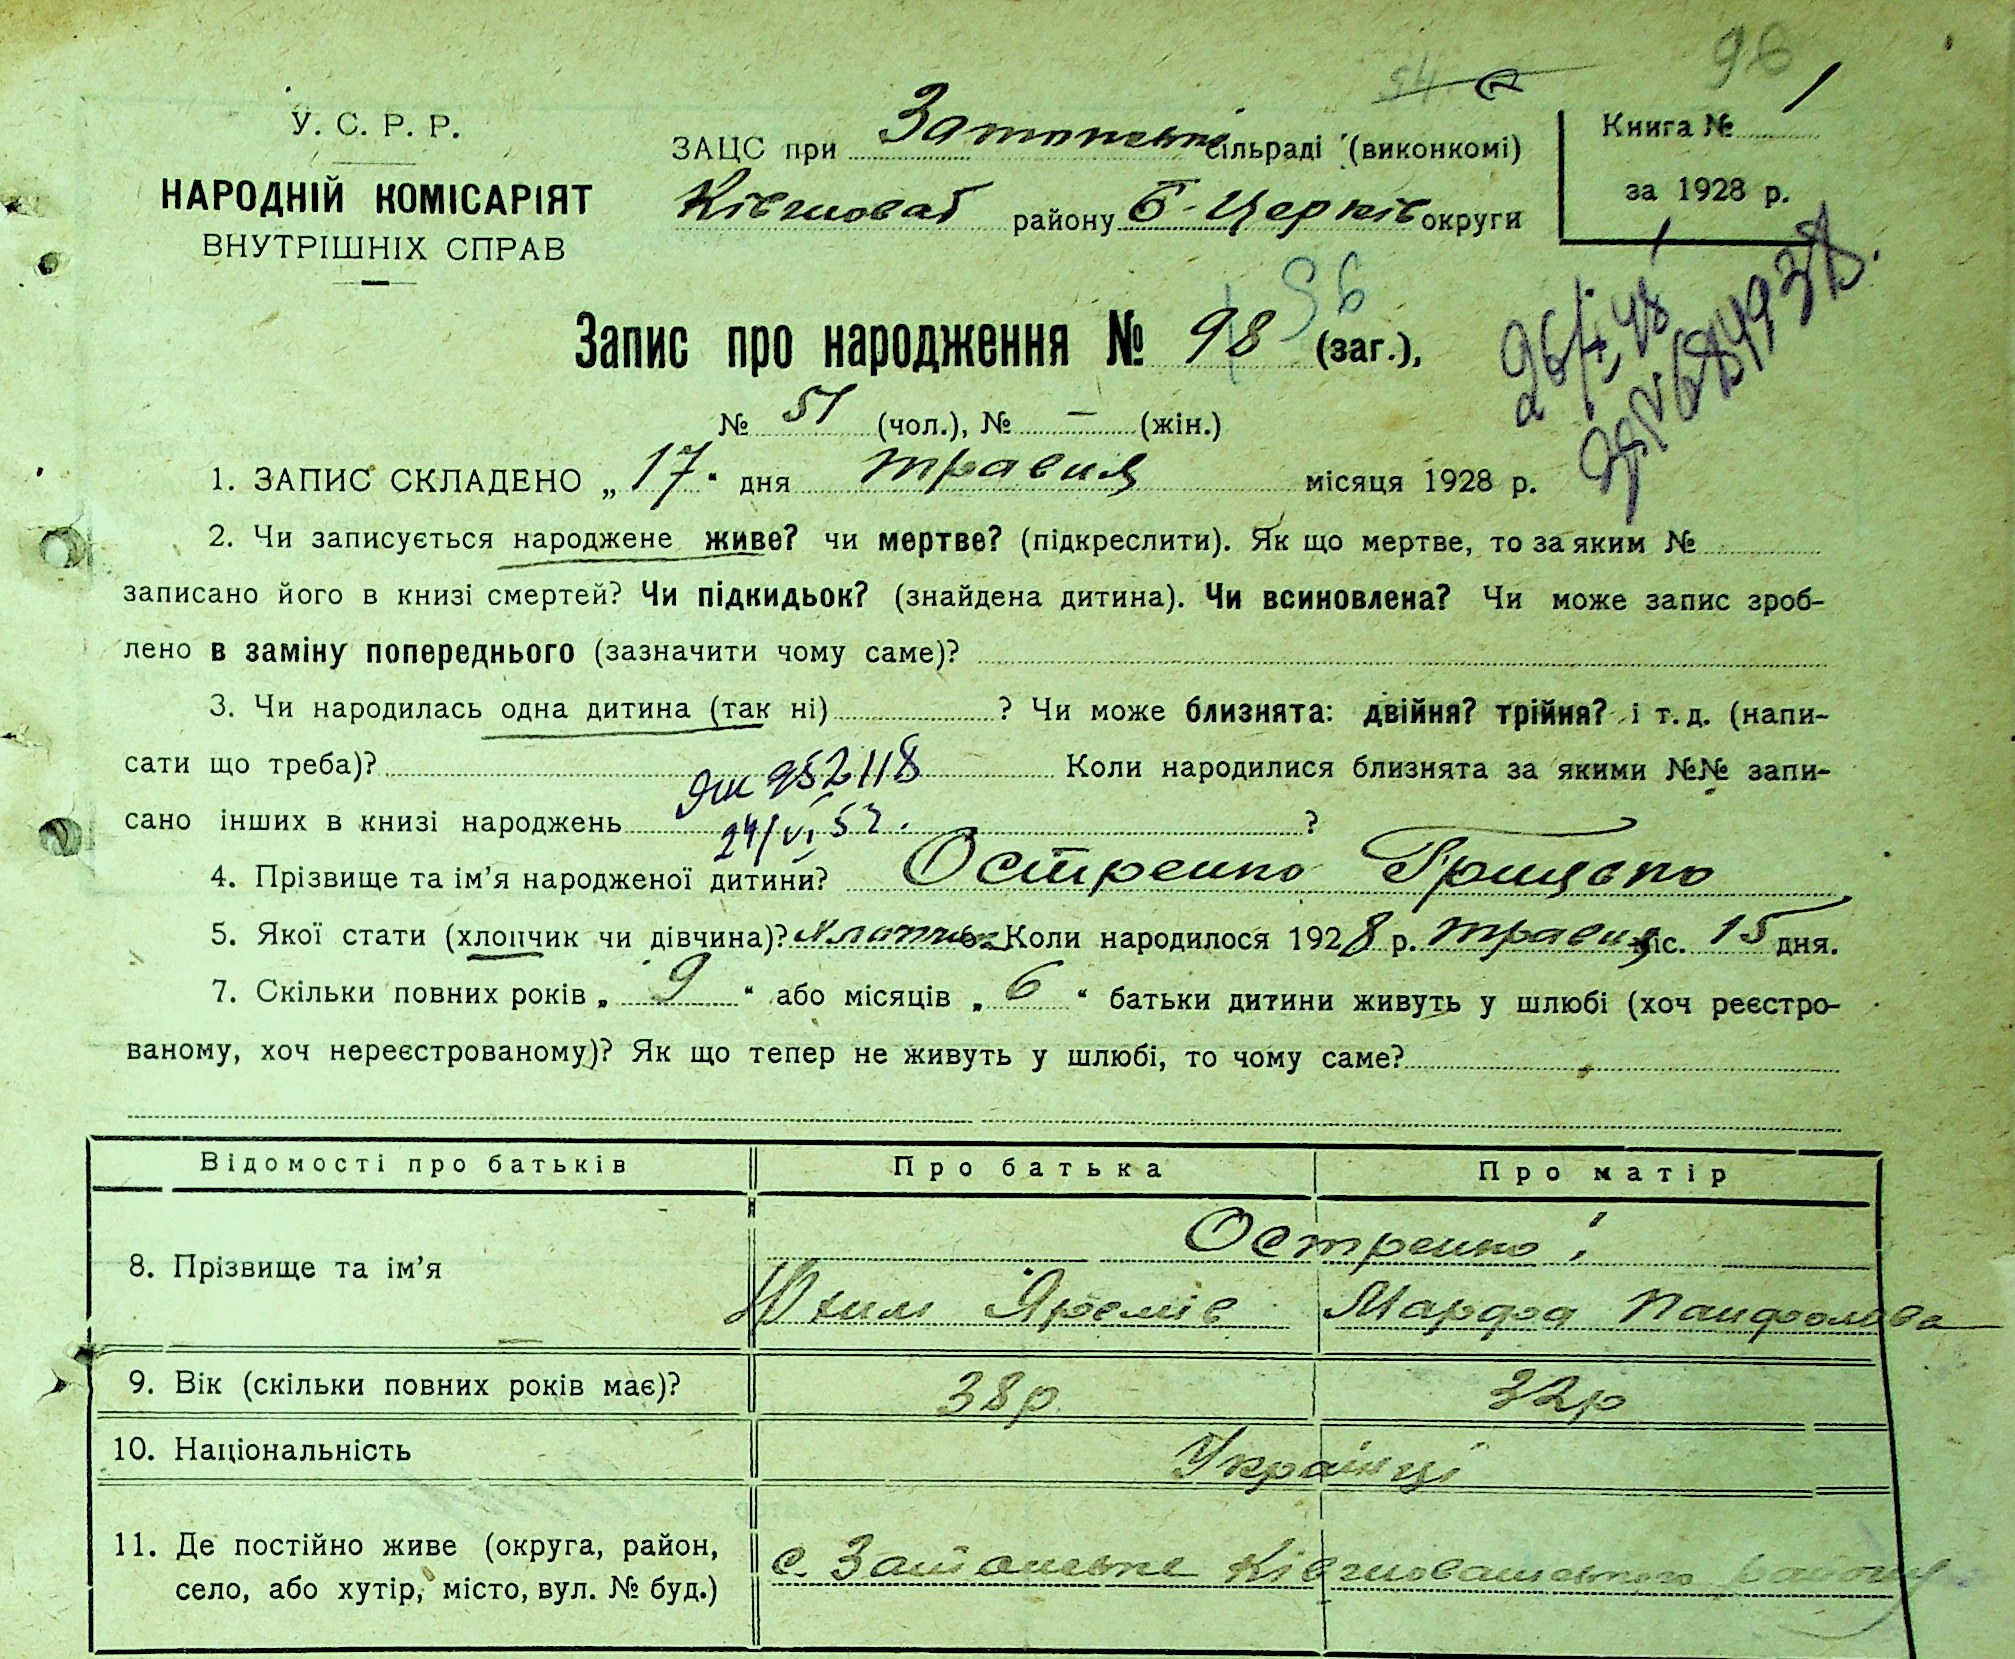 96
54
У. С. Р. Р.
НАРОДНІЙ КОМІСАРІЯТ
ВНУТРІШНІХ СПРАВ
ЗАЦС при Затонські сільраді (виконкомі)
Ківшоват району Б-Церків округи
Книга № 1
за 1928 р.
Запис про народження № 98 96 (заг.),
№ 51 (чол.), № — (жін.)
1. ЗАПИС СКЛАДЕНО „17“ дня травня місяця 1928 р.
2. Чи записується народжене живе? чи мертве? (підкреслити). Як що мертве, то за яким №
записано його в книзі смертей? Чи підкидьок? (знайдена дитина). Чи всиновлена? Чи може запис зроб-
лено в заміну попереднього (зазначити чому саме)?
3. Чи народилась одна дитина (так ні) ? Чи може близнята: двійня? трійня? і т. д. (напи-
сати що треба)? 952118 Коли народилися близнята за якими №№ запи-
сано інших в книзі народжень 24/VI 52. ?
4. Прізвище та ім’я народженої дитини? Остренко Грицько
5. Якої стати (хлопчик чи дівчина)? Хлопчик Коли народилося 1928 р. травня міс. 15 дня.
7. Скільки повних років „9“ або місяців „6“ батьки дитини живуть у шлюбі (хоч реєстро-
ваному, хоч нереєстрованому)? Як що тепер не живуть у шлюбі, то чому саме?
Відомості про батьків Про батька Про матір
8. Прізвище та ім’я Остренко і
Юхим Яремів Марфа Панфолова
9. Вік (скільки повних років має)? 38р 32р
10. Національність Українці
11. Де постійно живе (округа, район,
село, або хутір, місто, вул. № буд.) с. Затонське Ківшоватського району